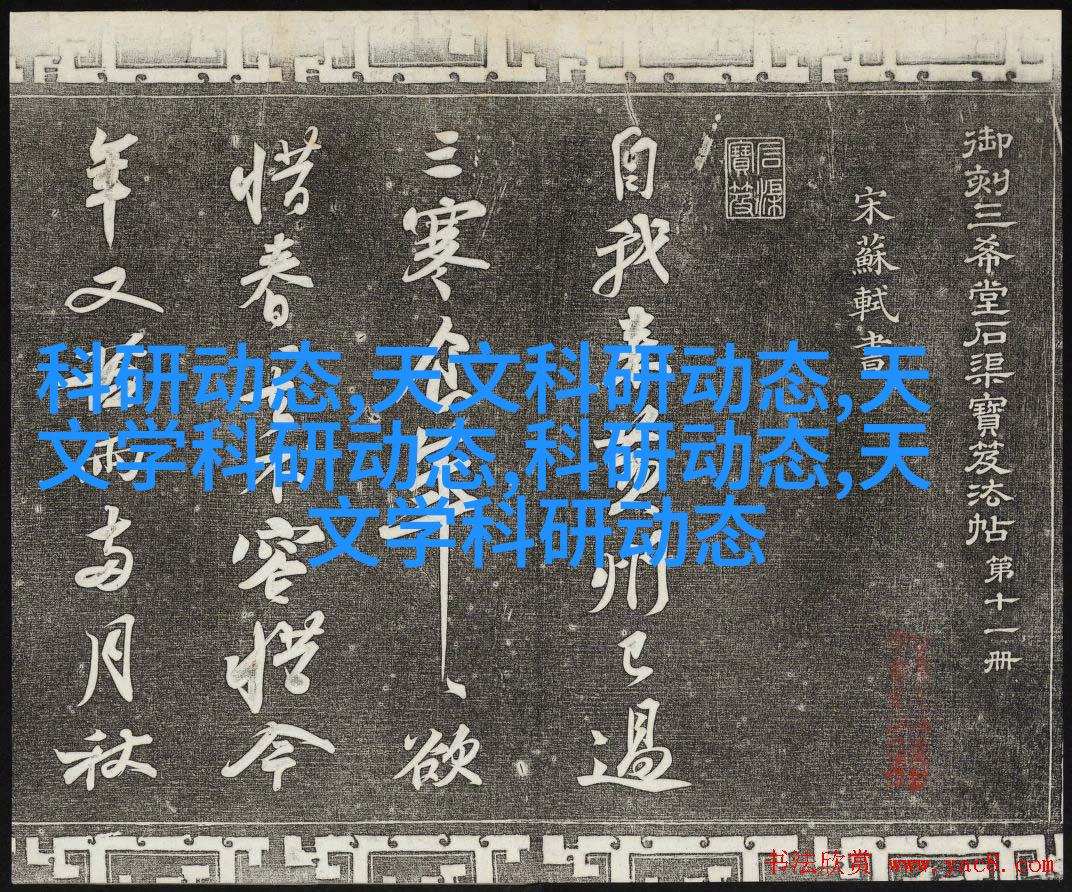 御刻三希堂石渠寶笈法帖 第十一册
宋蘇軾書
石渠寶笈
自我来黄州已過
三寒食年、欲
惜春去不容惜今
年又苦雨兩月秋
科研动态,天文科研动态,天
文学科研动态,科研动态,天
文学科研动态
书法欣赏 www.yac8.com